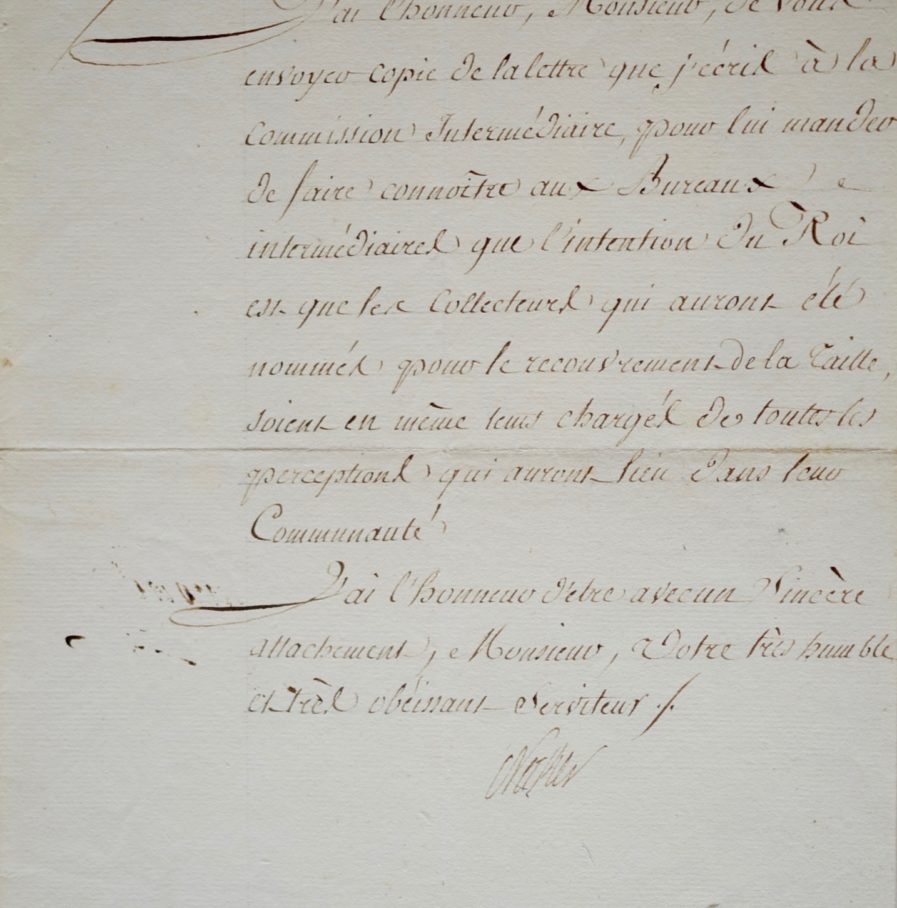 J'ai l'honneur, Monsieur, de vous
envoyer copie de la lettre que j'écris à la
Commission Intermédiaire, pour lui mander
de faire connoître aux Bureaux
intermédiaires que l'intention du Roi
est que les Collecteurs qui auront été
nommés pour le recouvrement de la Taille,
soient en même tems chargés de toutes les
perceptions qui auront lieu dans leur
Communauté
J'ai l'honneur d'etre avec un Sincère
attachement, Monsieur, Votre très humble
et très obéissant Serviteur ./.
Necker